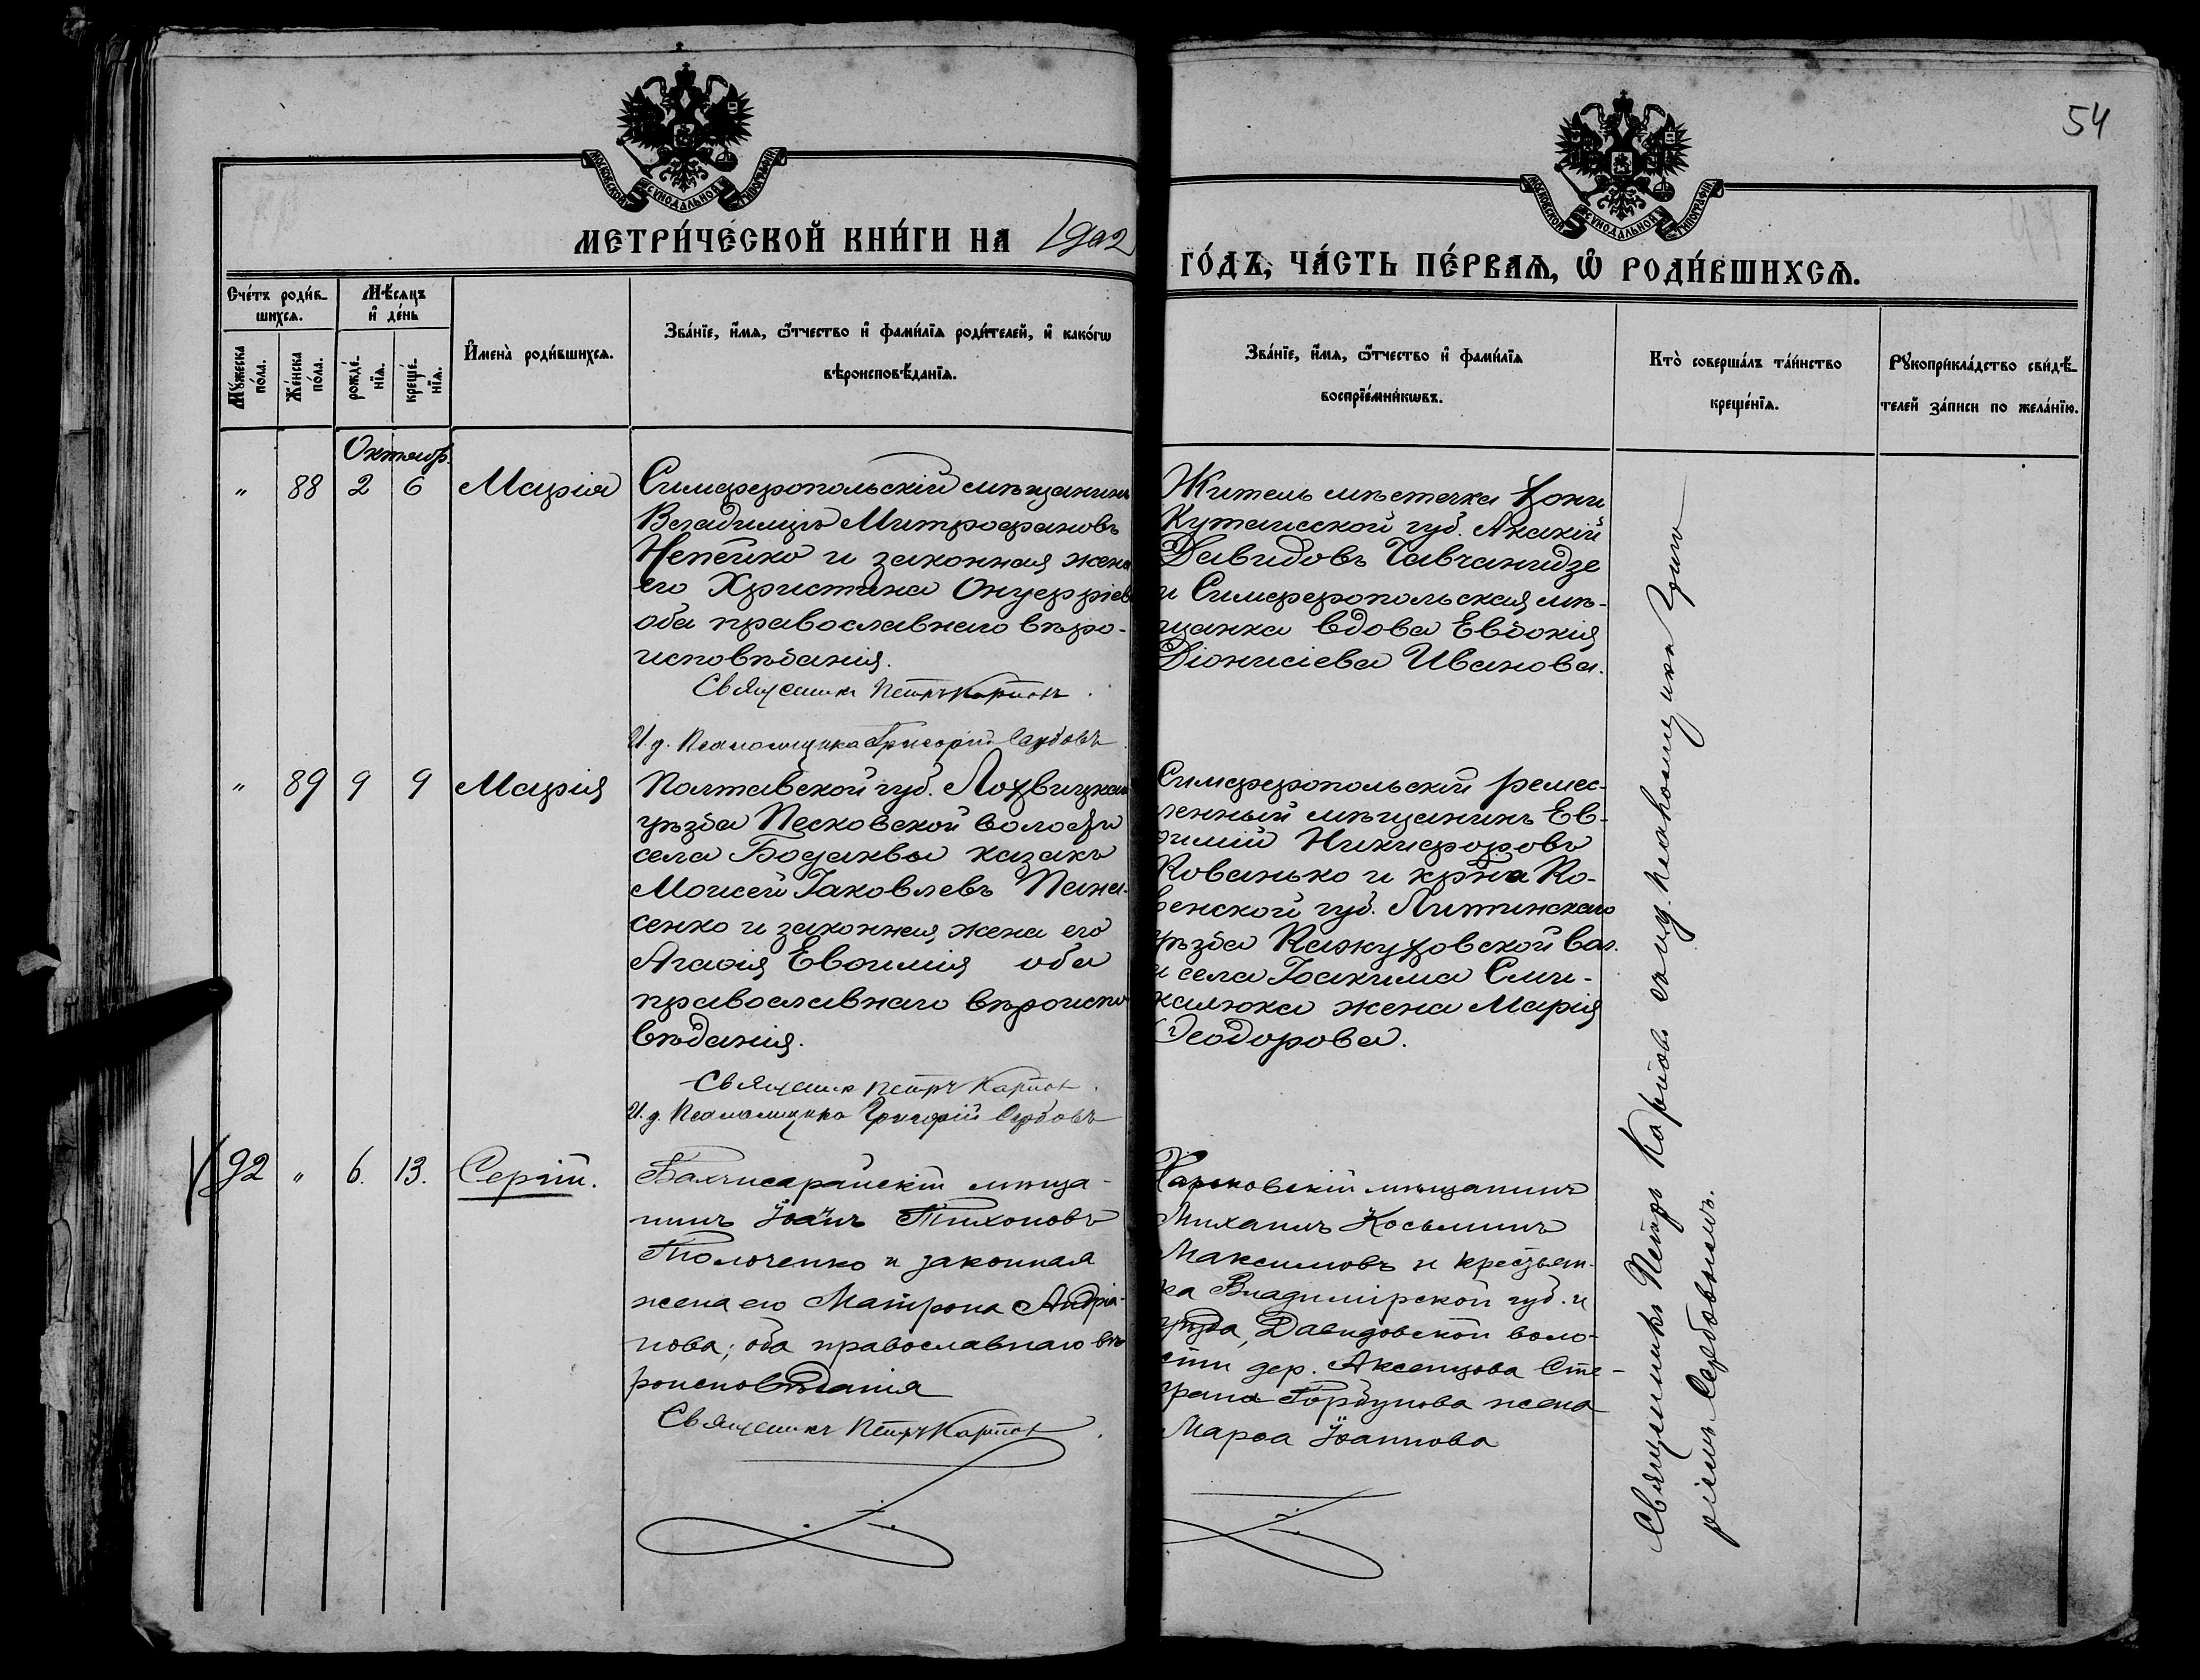 54
МОСКОВСКОЙ СУНОДАЛЬНОЙ ТИПОГРАФІИ
МОСКОВСКОЙ СУНОДАЛЬНОЙ ТИПОГРАФІИ
МЕТРИ́ЧЕСКОЙ КНИ́ГИ НА 1902
ГО́ДЪ, ЧА́СТЬ ПЕ́РВАѦ, Ѽ РОДИ́ВШИХСѦ.
Сче́тъ роди́в-
шихсѧ.
Мꙋ́жеска по́ла.
Же́нска по́ла.
Мѣ́сѧцъ
и҆ де́нь
рожде́-
нїѧ.
креще́-
нїѧ.
И҆мена̀ роди́вшихсѧ.
Зва́нїе, и҆́мѧ, ѻ҆́тчество и҆ фами́лїѧ роди́телей, и҆ како́гѡ
вѣроисповѣ́данїѧ.
Зва́нїе, и҆́мѧ, ѻ҆́тчество и҆ фами́лїѧ
воспрїе́мникѡвъ.
Кто̀ соверша́лъ та́инство
креще́нїѧ.
Рꙋкоприкла́дство свидѣ́-
телей за́писи по жела́нїю.
Октябр.
" 88 2 6 Марія
Симферопольскій мѣщанинъ
Владиміръ Митрофановъ
Непейко и законная жена
его Христина Онуфріев
оба православнаго вѣро-
исповѣданія.
Священникъ Петръ Карпов
И. д. Псаломщика Григорій Сербовъ
Житель мѣстечка Хони
Кутаисской губ. Акакій
Давидовъ Чавчанидзе
и Симферопольская мѣ-
щанка вдова Евдокія
Діонисіева Иванова.
" 89 9 9 Марія
Полтавской губ. Лохвицкаго
уѣзда Песковской волости
села Бодаквы казакъ
Моисей Іаковлевъ Пана-
сенко и законная жена его
Агаѳія Евѳимія оба
православнаго вѣроиспо
вѣданія.
Священникъ Петръ Карпов
И. д. Псаломщика Григорій Сербовъ
Симферопольскій ремес-
ленный мѣщанинъ Ев-
ѳимій Никифоровъ
Кованько и крна Ко-
венской губ. Литинскаго
уѣзда вол.
села Іоакима
жена Марія
Ѳеодорова.
92 " 6. 13. Сергій.
Бахчисарайскій мѣща-
нинъ Іоаннъ Тихоновъ
Толоченко и законная
жена его Матрона Андріа-
нова; оба православнаго вѣ
роисповѣданія
Священникъ Петръ Карпов
Харьковскій мѣщанинъ
Михаилъ Косьминъ
Максимовъ и крестьян-
ка Владимірской губ. и
уѣзда, Давидовской воло-
сти дер. Аксенцова Сте-
фана Горбунова жена
Марѳа Іоаннова
Священникъ Петръ Карпов съ и. д. псаломщика Григо
ріемъ Сербовымъ.